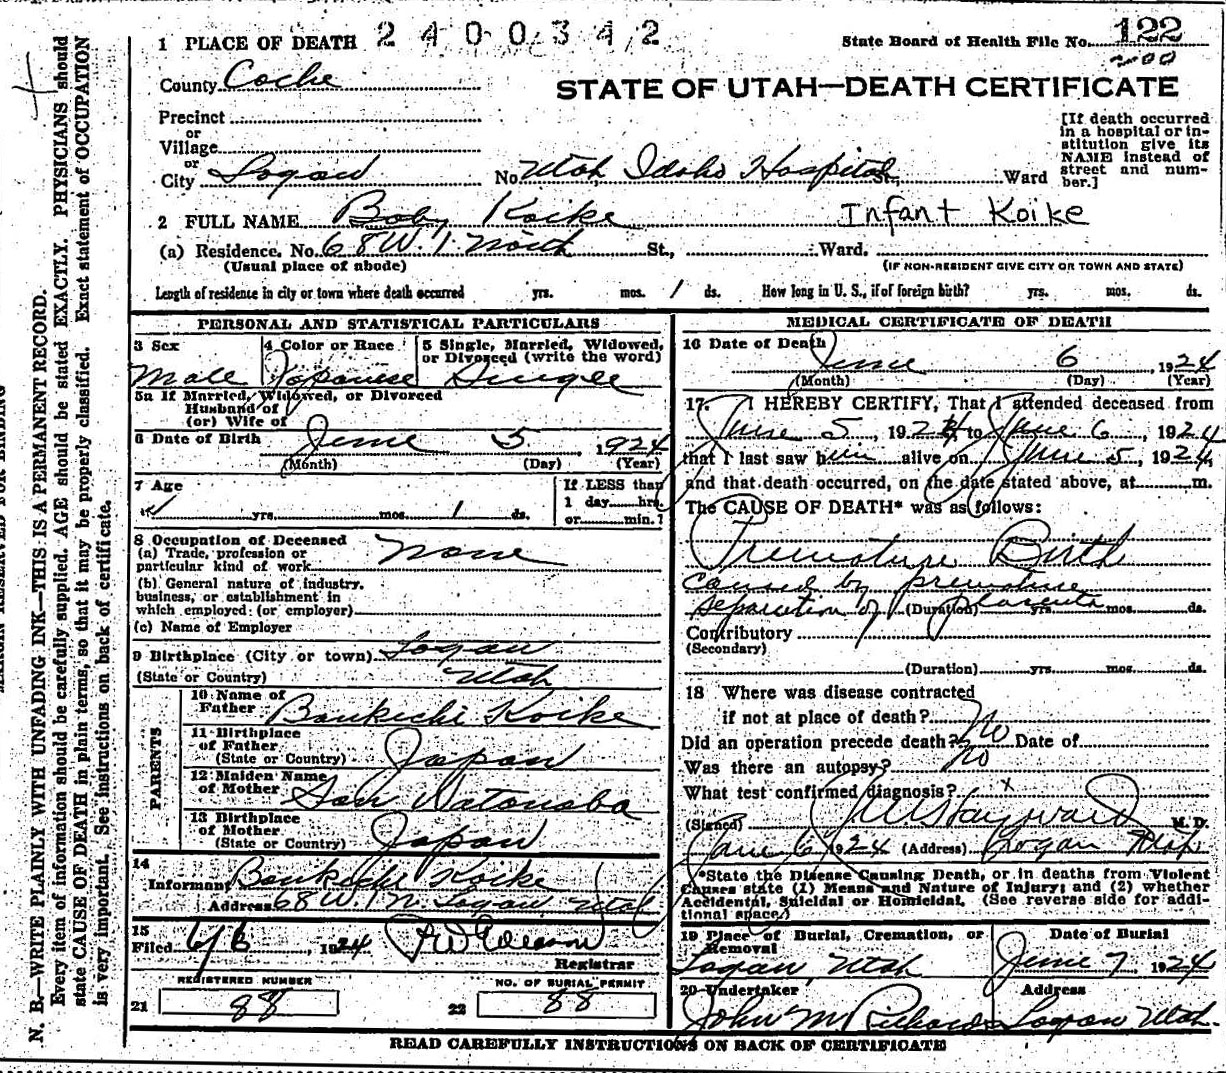 1 PLACE OF DEATH 2400342
State Board of Health File No. 122
200
County Cache
STATE OF UTAH—DEATH CERTIFICATE
Precinct
or
Village
or
City Logan No. Utah Idaho Hospital St., Ward
[If death occurred
in a hospital or in-
stitution give its
NAME instead of
street and num-
ber.]
2 FULL NAME Baby Koike Infant Koike
(a) Residence. No. 68 W. 1 North St., Ward.
(Usual place of abode) (IF NON-RESIDENT GIVE CITY OR TOWN AND STATE)
Length of residence in city or town where death occurred yrs. mos. 1 ds. How long in U. S., if of foreign birth? yrs. mos. ds.
PERSONAL AND STATISTICAL PARTICULARS
3 Sex 4 Color or Race 5 Single, Married, Widowed,
or Divorced (write the word)
Male Japanese Single
5a If Married, Widowed, or Divorced
Husband of
(or) Wife of
6 Date of Birth June 5, 1924
(Month) (Day) (Year)
7 Age If LESS than
1 day hrs.
yrs. mos. 1 ds. or min.?
8 Occupation of Deceased
(a) Trade, profession or
particular kind of work None
(b) General nature of industry,
business, or establishment in
which employed (or employer)
(c) Name of Employer
9 Birthplace (City or town) Logan
(State or Country) Utah
PARENTS
10 Name of
Father Bunkechi Koike
11 Birthplace
of Father
(State or Country) Japan
12 Maiden Name
of Mother San Watonaba
13 Birthplace
of Mother
(State or Country) Japan
14
Informant Bunkechi Koike
Address 68 W. 1 N. Logan Utah
15
Filed 6/6, 1924
Registrar
REGISTERED NUMBER NO. OF BURIAL PERMIT
21 88 22 88
MEDICAL CERTIFICATE OF DEATH
16 Date of Death June 6, 1924
(Month) (Day) (Year)
17. I HEREBY CERTIFY, That I attended deceased from
June 5, 1924, to June 6, 1924
that I last saw him alive on June 5, 1924,
and that death occurred, on the date stated above, at m.
The CAUSE OF DEATH* was as follows:
Premature Birth
caused by premature
separation of placenta (Duration) yrs. mos. ds.
Contributory
(Secondary)
(Duration) yrs. mos. ds.
18 Where was disease contracted
if not at place of death?
Did an operation precede death? No Date of
Was there an autopsy? No
What test confirmed diagnosis? x
(Signed) Hayward M. D.
June 6 1924 (Address) Logan Utah.
*State the Disease Causing Death, or in deaths from Violent
Causes state (1) Means and Nature of Injury; and (2) whether
Accidental, Suicidal or Homicidal. (See reverse side for addi-
tional space.)
19 Place of Burial, Cremation, or Date of Burial
Removal
Logan, Utah June 7, 1924
20 Undertaker Address
John M Richards Logan Utah.
READ CAREFULLY INSTRUCTIONS ON BACK OF CERTIFICATE
N. B.—WRITE PLAINLY WITH UNFADING INK—THIS IS A PERMANENT RECORD.
Every item of information should be carefully supplied. AGE should be stated EXACTLY. PHYSICIANS should
state CAUSE OF DEATH in plain terms, so that it may be properly classified. Exact statement of OCCUPATION
is very important. See instructions on back of certificate.